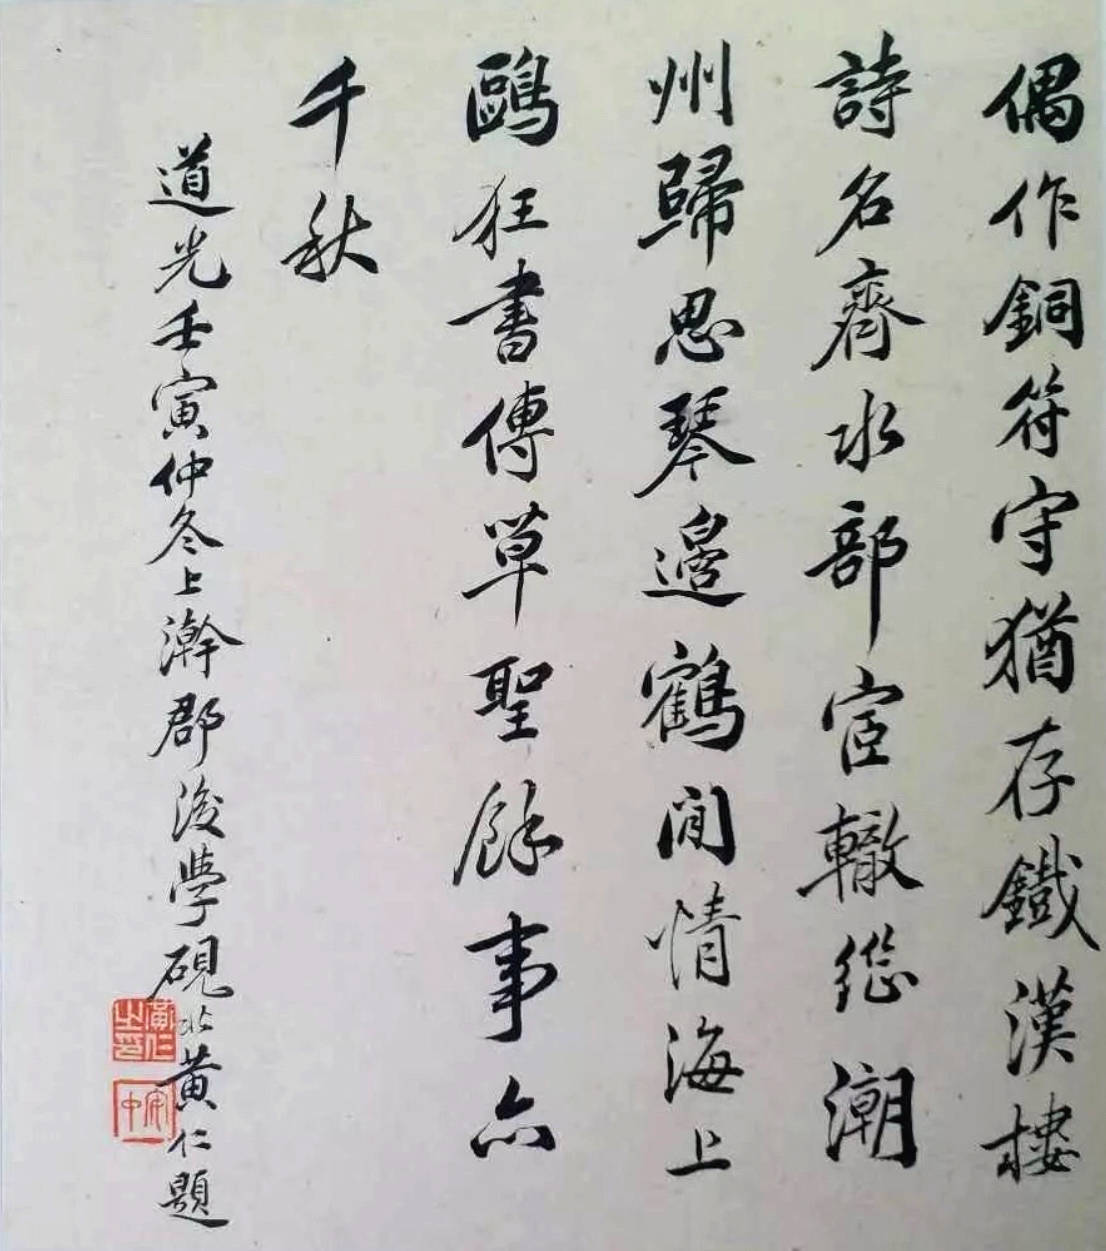 偶作銅符守猶存鐵漢樓
詩名齊水部宦轍繼潮
州歸思琴邊鶴閒情海上
鷗狂書傳草聖餘事亦
千秋
道光壬寅仲冬上澣郡後學硯北黃仁題
黃仁之印